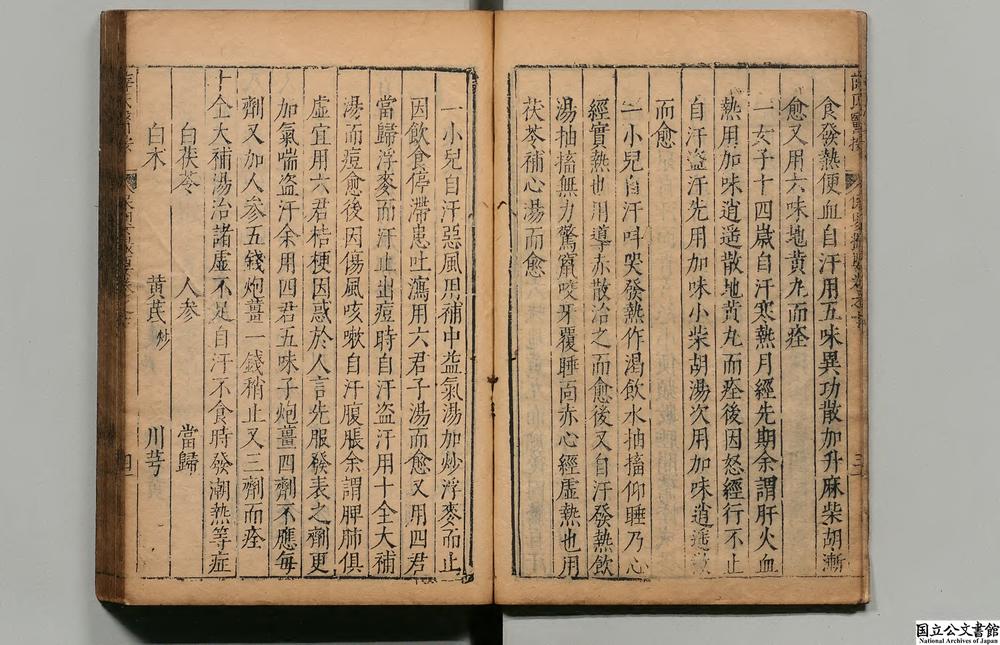 食發熱便血自汗用五味異功散加升麻柴胡漸
愈又用六味地黃丸而痊
一女子十四歲自汗寒熱月經先期余謂肝火血
熱用加味逍遥散地黃丸而痊後因怒經行不止
自汗盗汗先用加味小柴胡湯次用加味逍遥散
而愈
一小兒自汗呌哭發熱作渴飲水抽搐仰睡乃心
經實熱也用導赤散治之而愈後又自汗發熱飲
湯抽搐無力驚竄咬牙覆睡面赤心經虛熱也用
茯苓補心湯而愈
三
一小兒自汗惡風用補中益氣湯加炒浮麥而止
因飲食停滯患吐瀉用六君子湯而愈又用四君
當歸浮麥而汗止出痘時自汗盗汗用十全大補
湯而痘愈後因傷風咳嗽自汗腹脹余謂脾肺俱
虛宜用六君桔梗因惑於人言先服發表之劑更
加氣喘盗汗余用四君五味子炮薑四劑不應每
劑又加人参五錢炮薑一錢稍止又三劑而痊
十全大補湯治諸虛不足自汗不食時發潮熱等症
白茯苓 人参 當歸
白术 黃芪炒 川芎
四
国立公文書館
National Archives of Japan